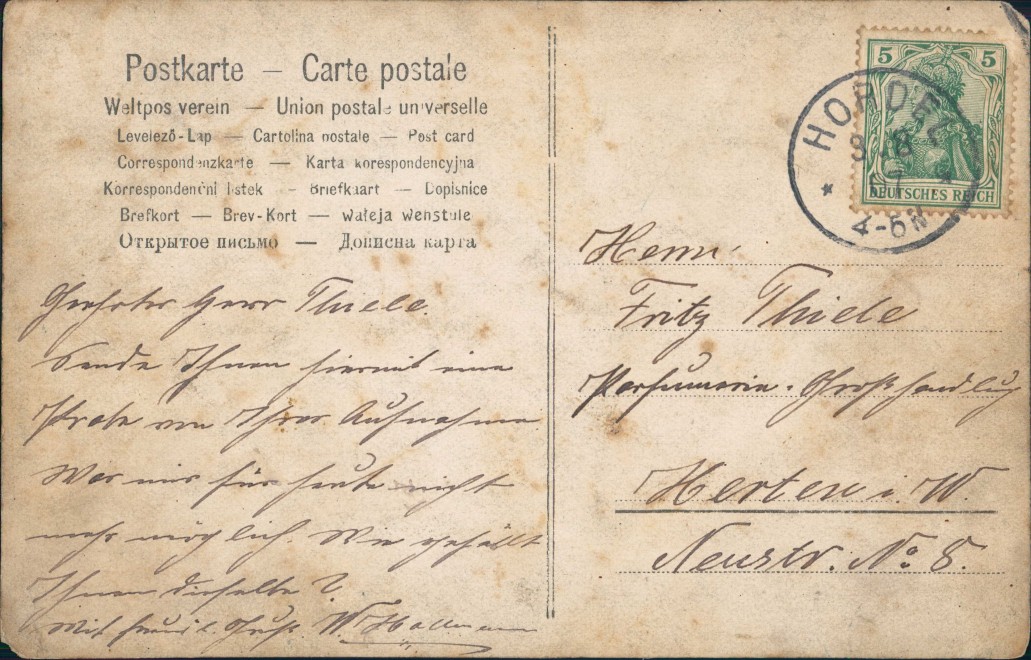 Postkarte — Carte postale
Weltpostverein — Union postale universelle
Levelező-Lap — Cartolina postale — Post card
Correspondenzkarte — Karta korespondencyjna
Korrespondenční listek — Briefkaart — Dopisnice
Brefkort — Brev-Kort — 
Открытое письмо — Дописна карта
Geehrter Herr Thiele.
Sende Ihnen hiermit eine
Probe von Ihrer Aufnahme
War mir für heute nicht
mehr möglich. Wie gefällt
Ihnen dieselbe?
Mit freundl. Gruß W.
5 5
DEUTSCHES REICH
HORDEL
4-5N
Herrn
Fritz Thiele
Parfumerie-Großhandlg
Herten i. W.
Neustr. No 8.